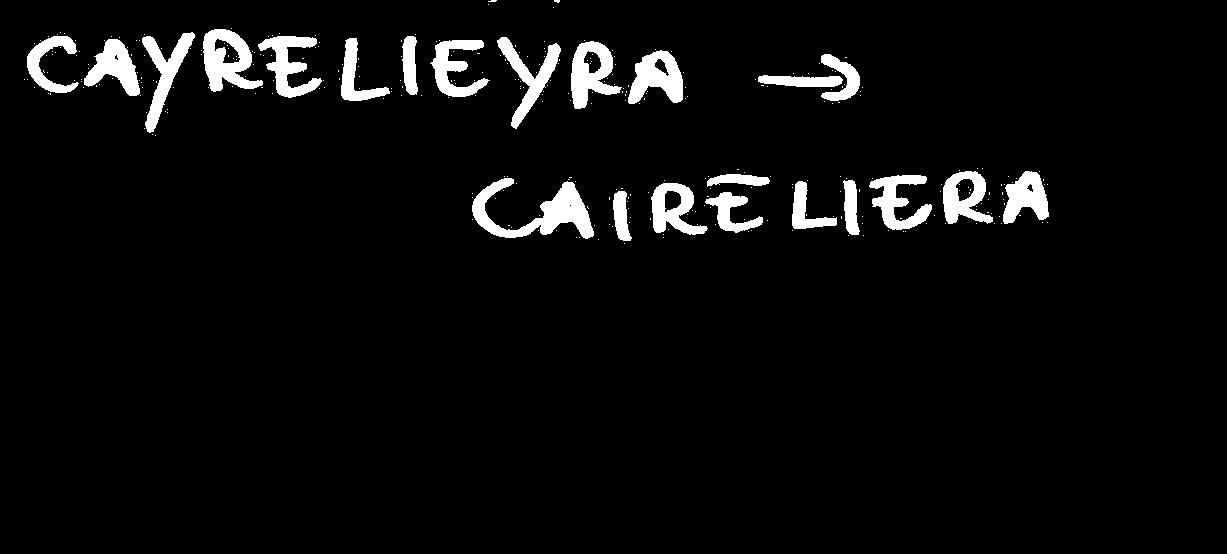 CAYRELIEYRA →
CAIRELIERA